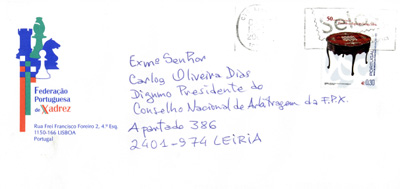 Federação
Portuguesa
de Xadrez
Rua Frei Francisco Foreiro 2, 4.º Esq.
1150-166 LISBOA
Portugal
Exmº Senhor
Carlos Oliveira Dias
Digmo Presidente do
Conselho Nacional de Arbitragem da F.P.X.
Apartado 386
2401-974 LEIRIA
PORTUGAL